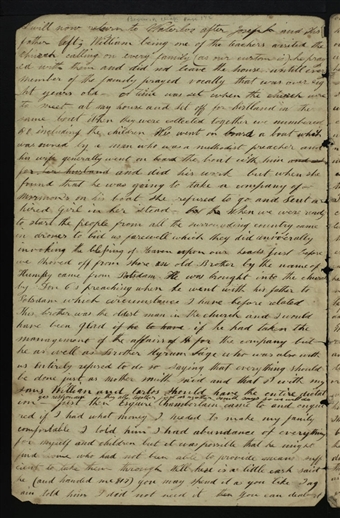 I will now return to Waterloo after Joseph and his
father left William being one of the teachers visited the
church calling on every family as our custom is he prayed
with them and did not leave the house untill every
member of the family prayed vocally that was over eig
ht years old. A time was set when the church were
to meet at my house and set off for Kirtland in the
same boat When they were collected together we numbered
including the children We went on board a boat which
was owned by a man who was a methodist preacher and
his wife generally went on board the boat with him
and did his work but when she
found that he was going to take a company of
mormons on his boat she refused to go and sent a
hired girl in her stead When we were ready
to start the people from all the surrounding country came
in droves to bid us farewell which they did universally
invoking the blessing of heaven upon our heads Just before
we shoved off from shore an old Brother by the name of
Humphry came from Potsdam He was brought into the church
by preaching when he went with his father to
Potsdam which circumstance I have before related
This brother was the oldest man in the church and I would
have been glad if he had taken the
management of the affairs of the company but
he as well as brother Hyrum Page who was also with
us utterly refused to do so saying that everything should
be done just as mother smith said and that I with my
sons William and Carlos should have the entire
Just then Esquire Chamberlain came to and enquir
ed if I had what money I needed to make my family
comfortable I told him I had abundance of everything
for myself and children but it was possible that he might
find some who had not been able to provide means suff
icient to take them through Well here is a little cash said
he (and handed me $17) you may spend it as you like I ag
ain told him I did not need it then you can